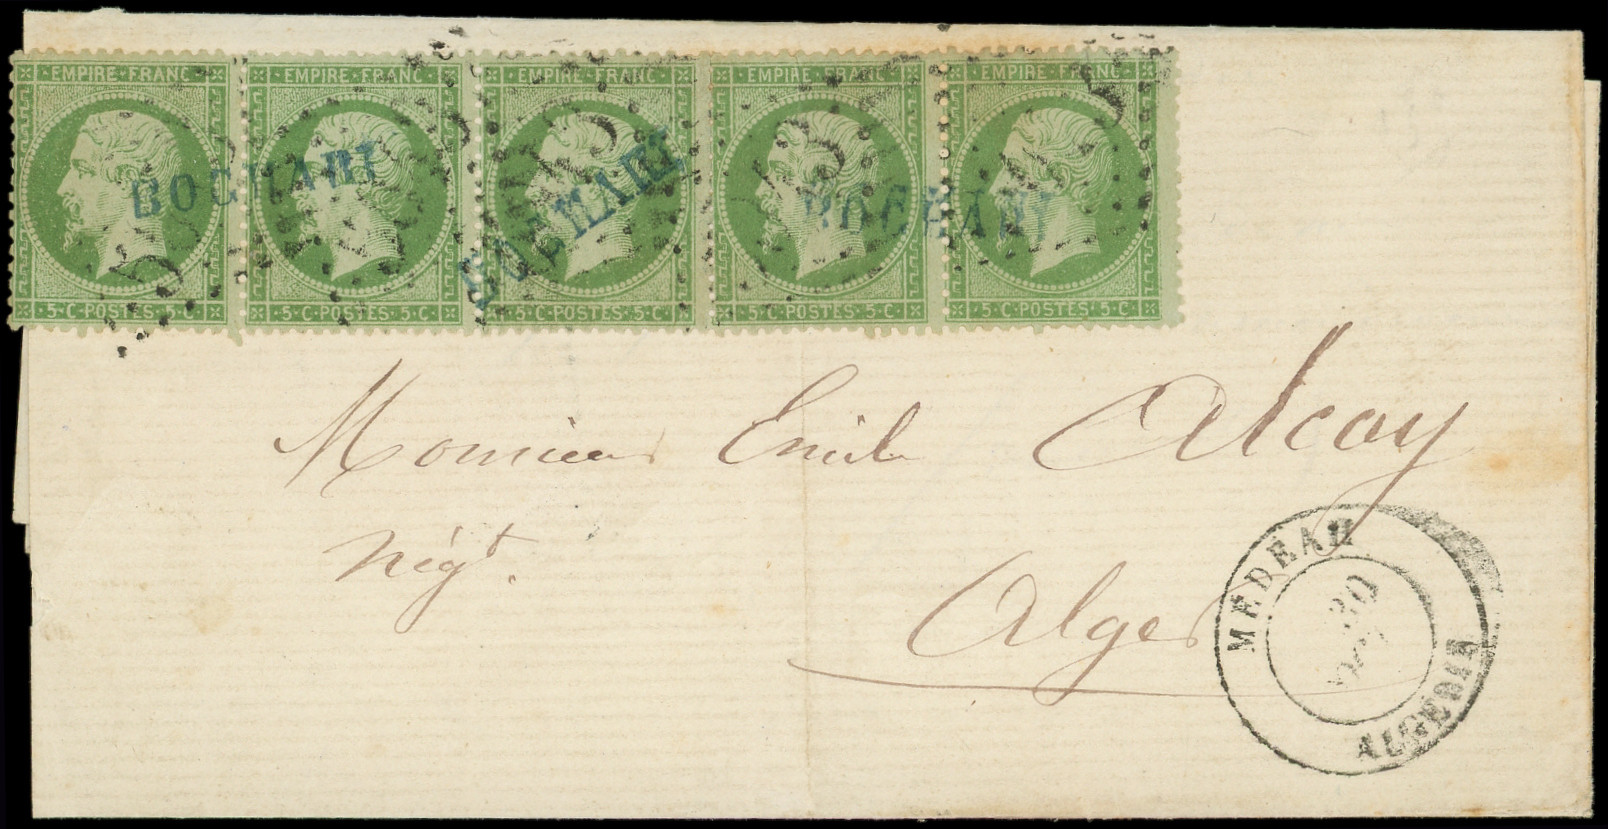 EMPIRE·FRANC EMPIRE·FRANC EMPIRE·FRANC EMPIRE·FRANC EMPIRE·FRANC
BOGHARI BOGHARI BOGHARI
5·C·POSTES·5·C· 5·C·POSTES·5·C· 5·C·POSTES·5·C· 5·C·POSTES·5·C· 5·C·POSTES·5·C·
Monsieur Emile Alcay
Négt.
Alger
MÉDÉAH
30
OCT
ALGÉRIE